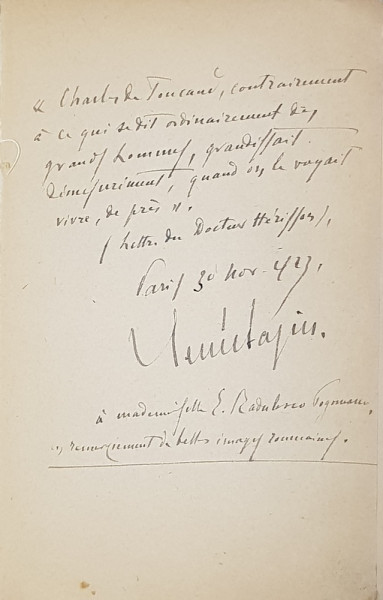 « Charles de Foucauld, contrairement
à ce qui se dit ordinairement des
grands hommes, grandissait
démesurément, quand on le voyait
vivre, de près ».
(Lettre du Docteur Hérisson),
Paris 30 Nov. 1923,
René Bazin.
à mademoiselle E. Radulesco Pogoneano,
en remerciement de belles images roumaines.